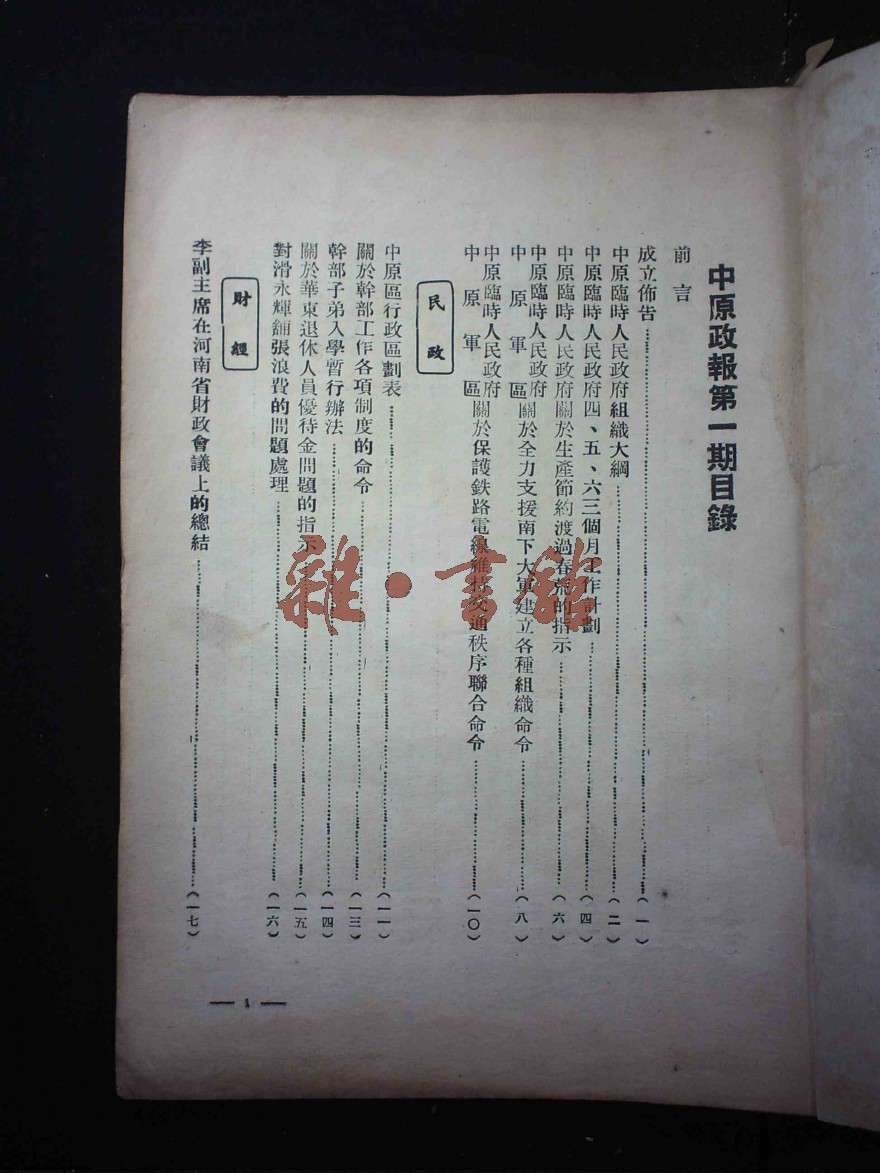 中原政報第一期目錄
前言
成立佈告……（一）
中原臨時人民政府組織大綱……（二）
中原臨時人民政府四、五、六三個月工作計劃……（四）
中原臨時人民政府關於生產節約渡過春荒的指示……（六）
中原臨時人民政府
中原軍區關於全力支援南下大軍建立各種組織命令……（八）
中原臨時人民政府
中原軍區關於保護鉄路電線維持交通秩序聯合命令……（一〇）
民政
中原區行政區劃表……（一一）
關於幹部工作各項制度的命令……（一三）
幹部子弟入學暫行辦法……（一四）
關於華東退休人員優待金問題的指示……（一五）
對滑永輝舖張浪費的問題處理……（一六）
財經
李副主席在河南省財政會議上的總結……（一七）
— 1 —
雜·書館